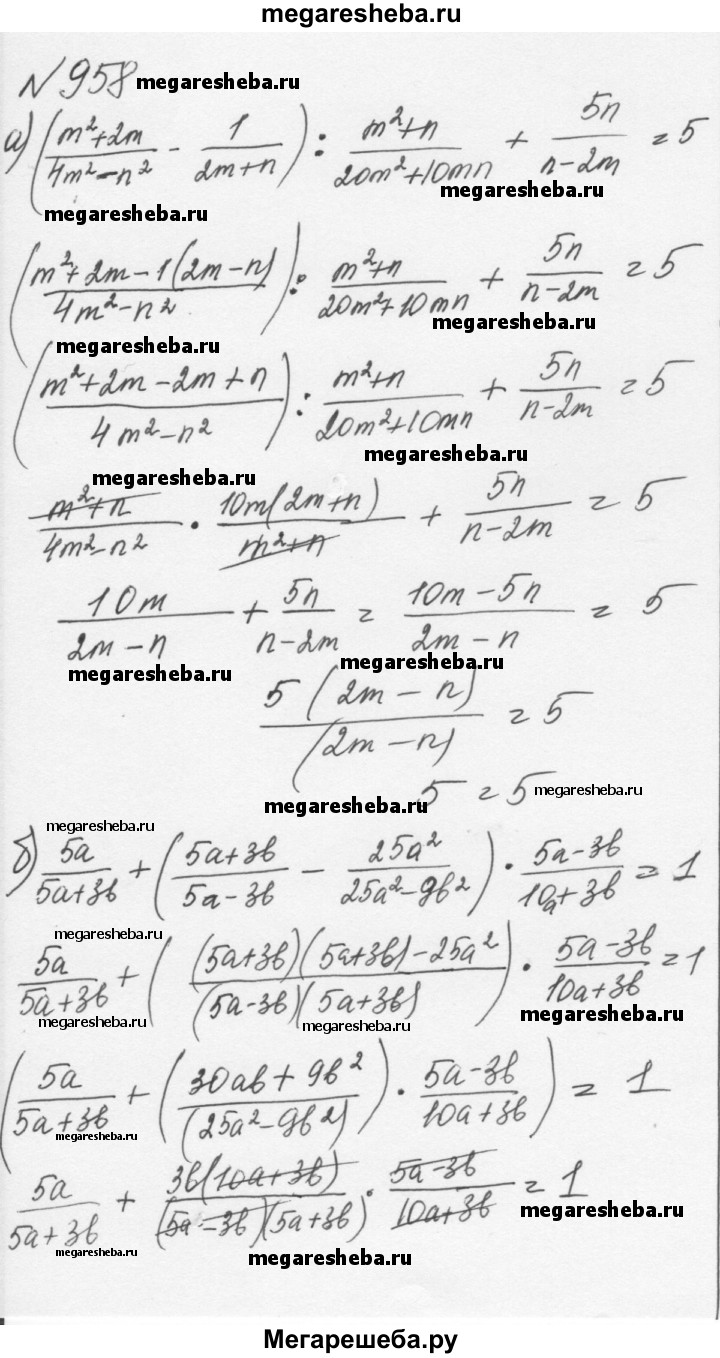 megaresheba.ru
№958 megaresheba.ru
а) ((m²+2m)/(4m²-n²) - 1/(2m+n)) : (m²+n)/(20m²+10mn) + 5n/(n-2m) = 5
megaresheba.ru megaresheba.ru
((m²+2m-1(2m-n))/(4m²-n²)) : (m²+n)/(20m²+10mn) + 5n/(n-2m) = 5
megaresheba.ru megaresheba.ru
((m²+2m-2m+n)/(4m²-n²)) : (m²+n)/(20m²+10mn) + 5n/(n-2m) = 5
megaresheba.ru megaresheba.ru
(m²+n)/(4m²-n²) · 10m(2m+n)/(m²+n) + 5n/(n-2m) = 5
megaresheba.ru
10m/(2m-n) + 5n/(n-2m) = (10m-5n)/(2m-n) = 5
megaresheba.ru megaresheba.ru
5(2m-n)/(2m-n) = 5
5 = 5
megaresheba.ru megaresheba.ru megaresheba.ru
б) 5a/(5a+3b) + ((5a+3b)/(5a-3b) - 25a²/(25a²-9b²)) · (5a-3b)/(10a+3b) = 1
megaresheba.ru
5a/(5a+3b) + (((5a+3b)(5a+3b)-25a²)/((5a-3b)(5a+3b))) · (5a-3b)/(10a+3b) = 1
megaresheba.ru megaresheba.ru megaresheba.ru
(5a/(5a+3b) + ((30ab+9b²)/(25a²-9b²)) · (5a-3b)/(10a+3b)) = 1
megaresheba.ru
5a/(5a+3b) + 3b(10a+3b)/((5a-3b)(5a+3b)) · (5a-3b)/(10a+3b) = 1
megaresheba.ru megaresheba.ru megaresheba.ru
Мегарешеба.ру